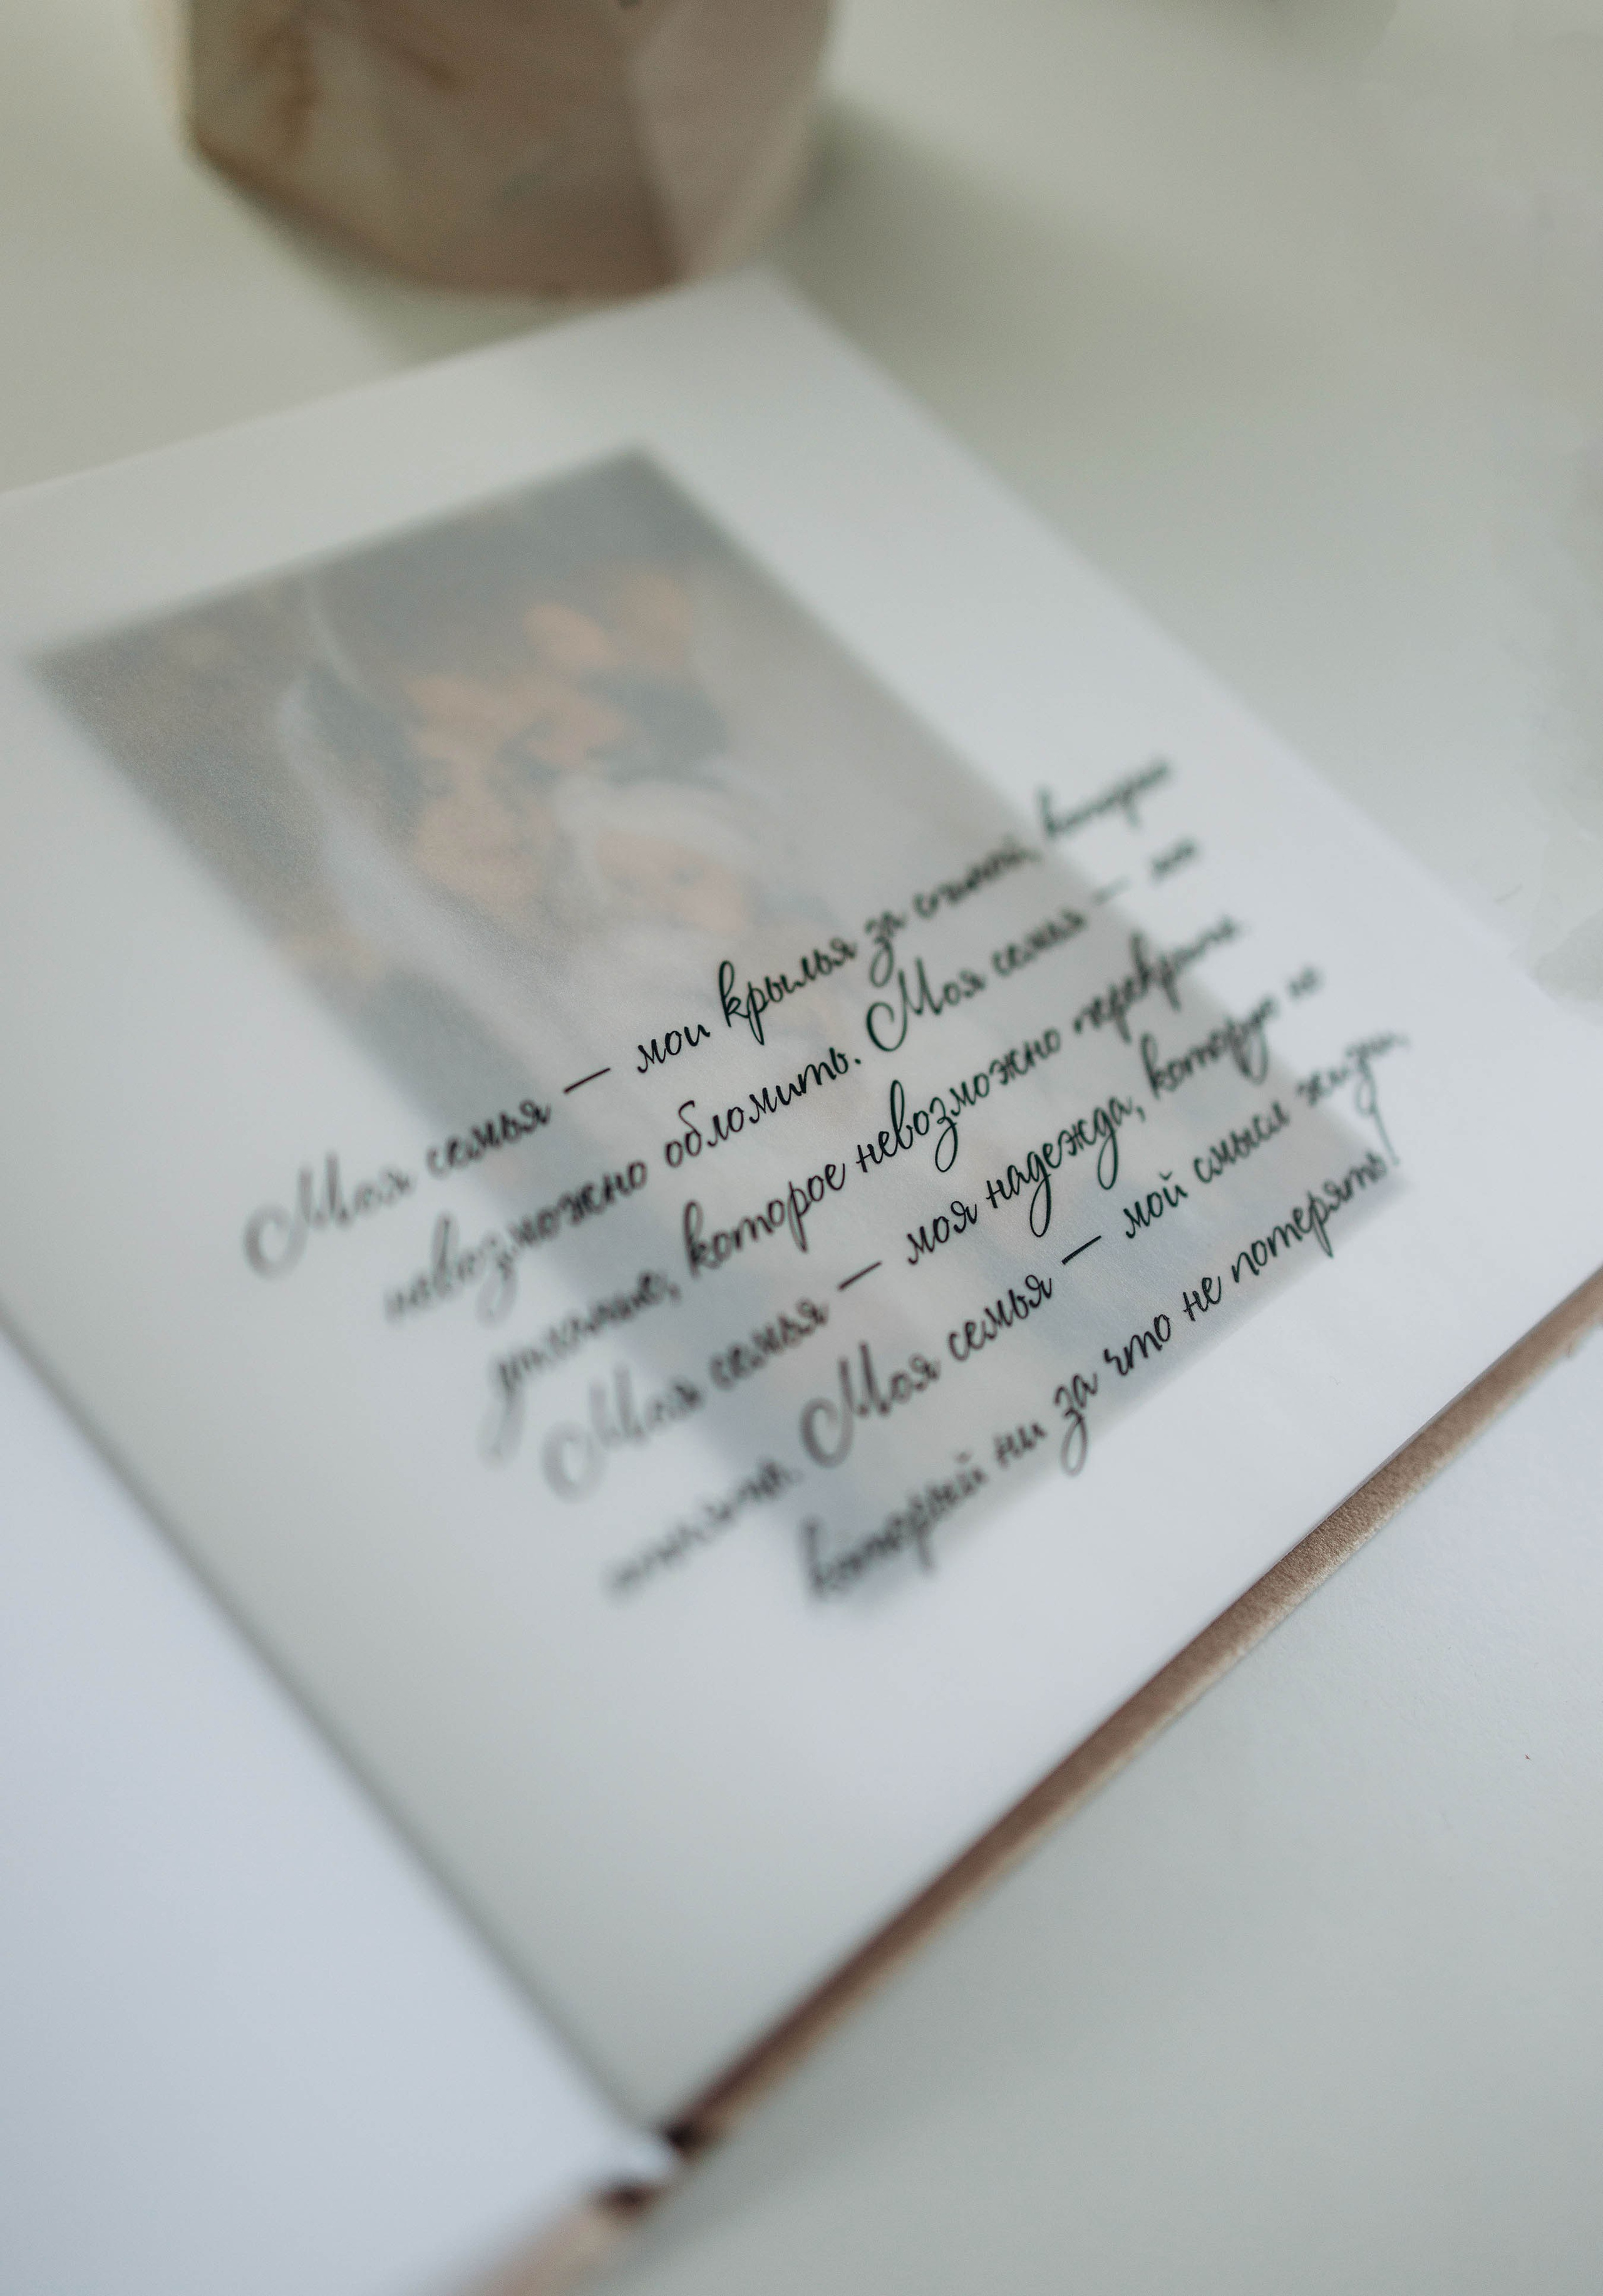 Моя семья — мои крылья за спиной, которые
невозможно обломить. Моя семья — мое
дыхание, которое невозможно перекрыть.
Моя семья — моя надежда, которую не
Моя семья — мой смысл жизни,
который ни за что не потерять!